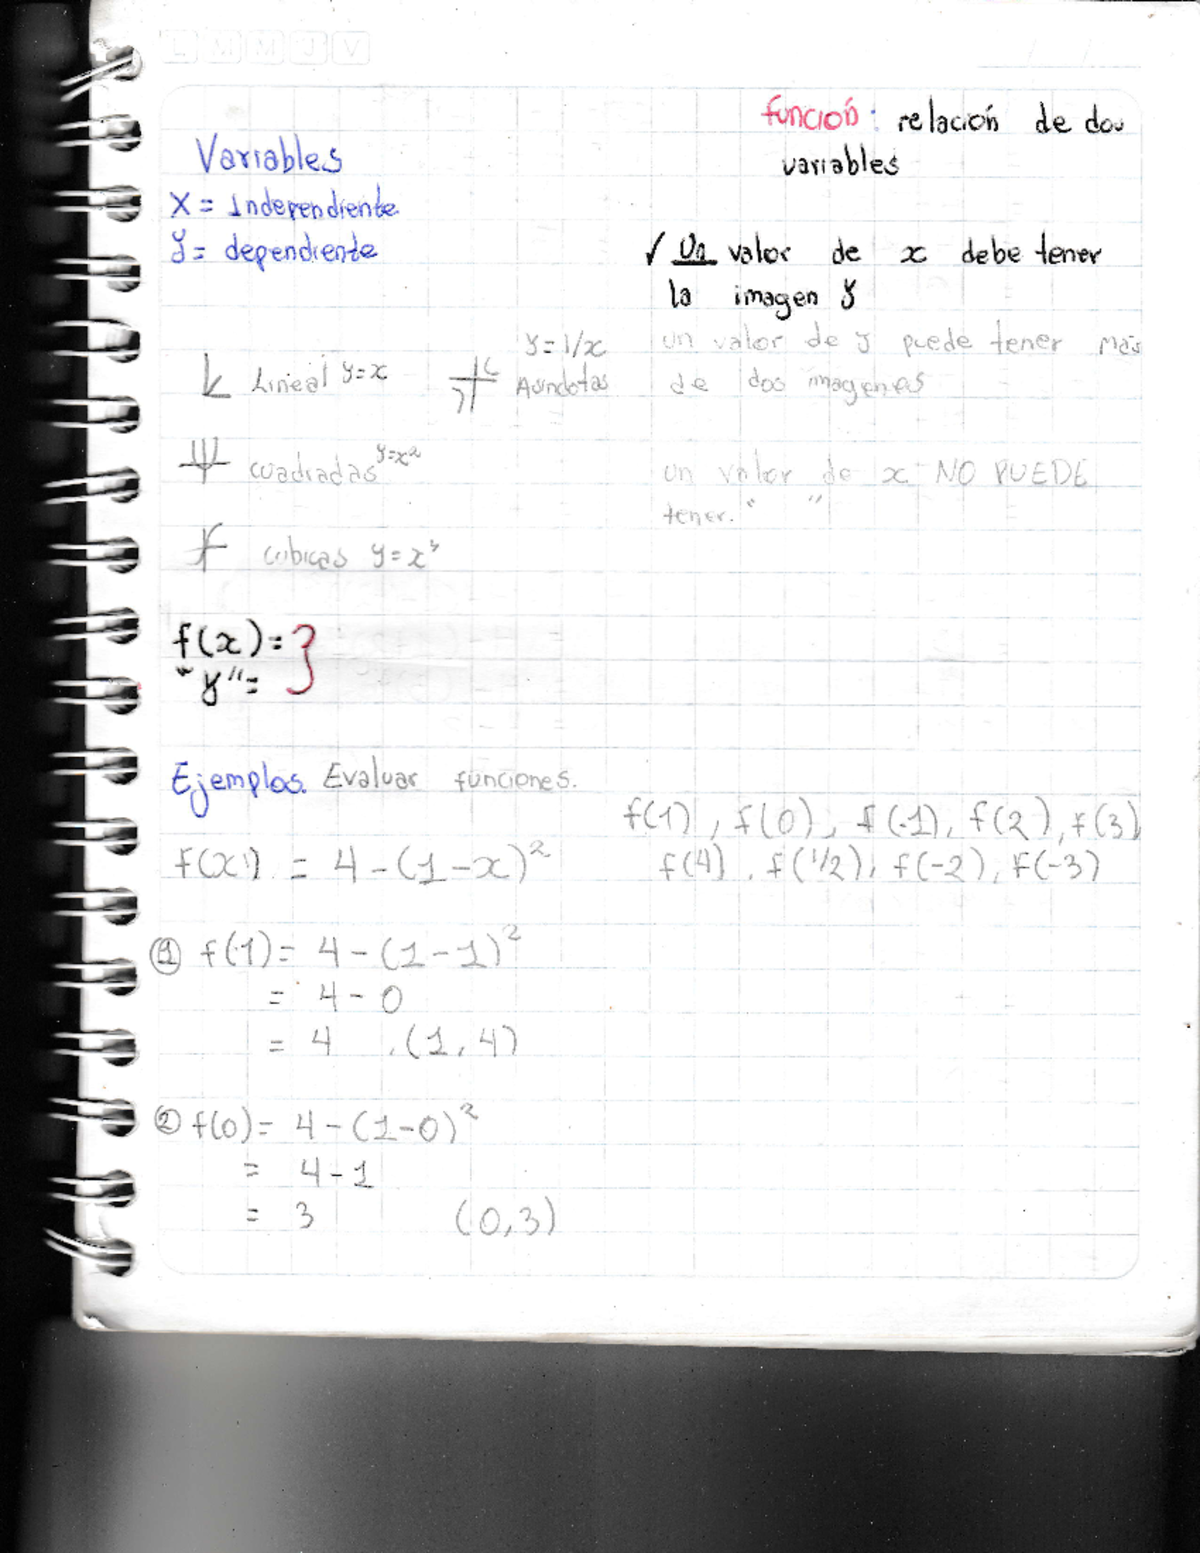 L M M J V
función: relación de dos
variables
Variables
X = Independiente
y = dependiente
✓ Un valor de x debe tener
la imagen y
un valor de y puede tener más
de dos imagenes
un valor de x NO PUEDE
tener. " "
Lineal y=x
y=1/x
Asíndotas
cuadradas y=x²
cubicas y=x³
f(x)=
"y"=
Ejemplos. Evaluar funciones.
f(1), f(0), f(-1), f(2), f(3)
f(x) = 4-(1-x)²
f(4), f(1/2), f(-2), f(-3)
① f(1)= 4-(1-1)²
= 4-0
= 4 .(1,4)
② f(0)= 4-(1-0)²
= 4-1
= 3 (0,3)